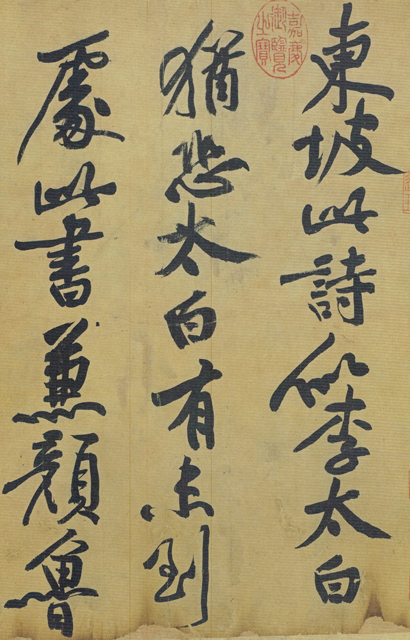 嘉慶御覽之寶
東坡此詩似李太白
猶恐太白有未到
處此書兼顏魯